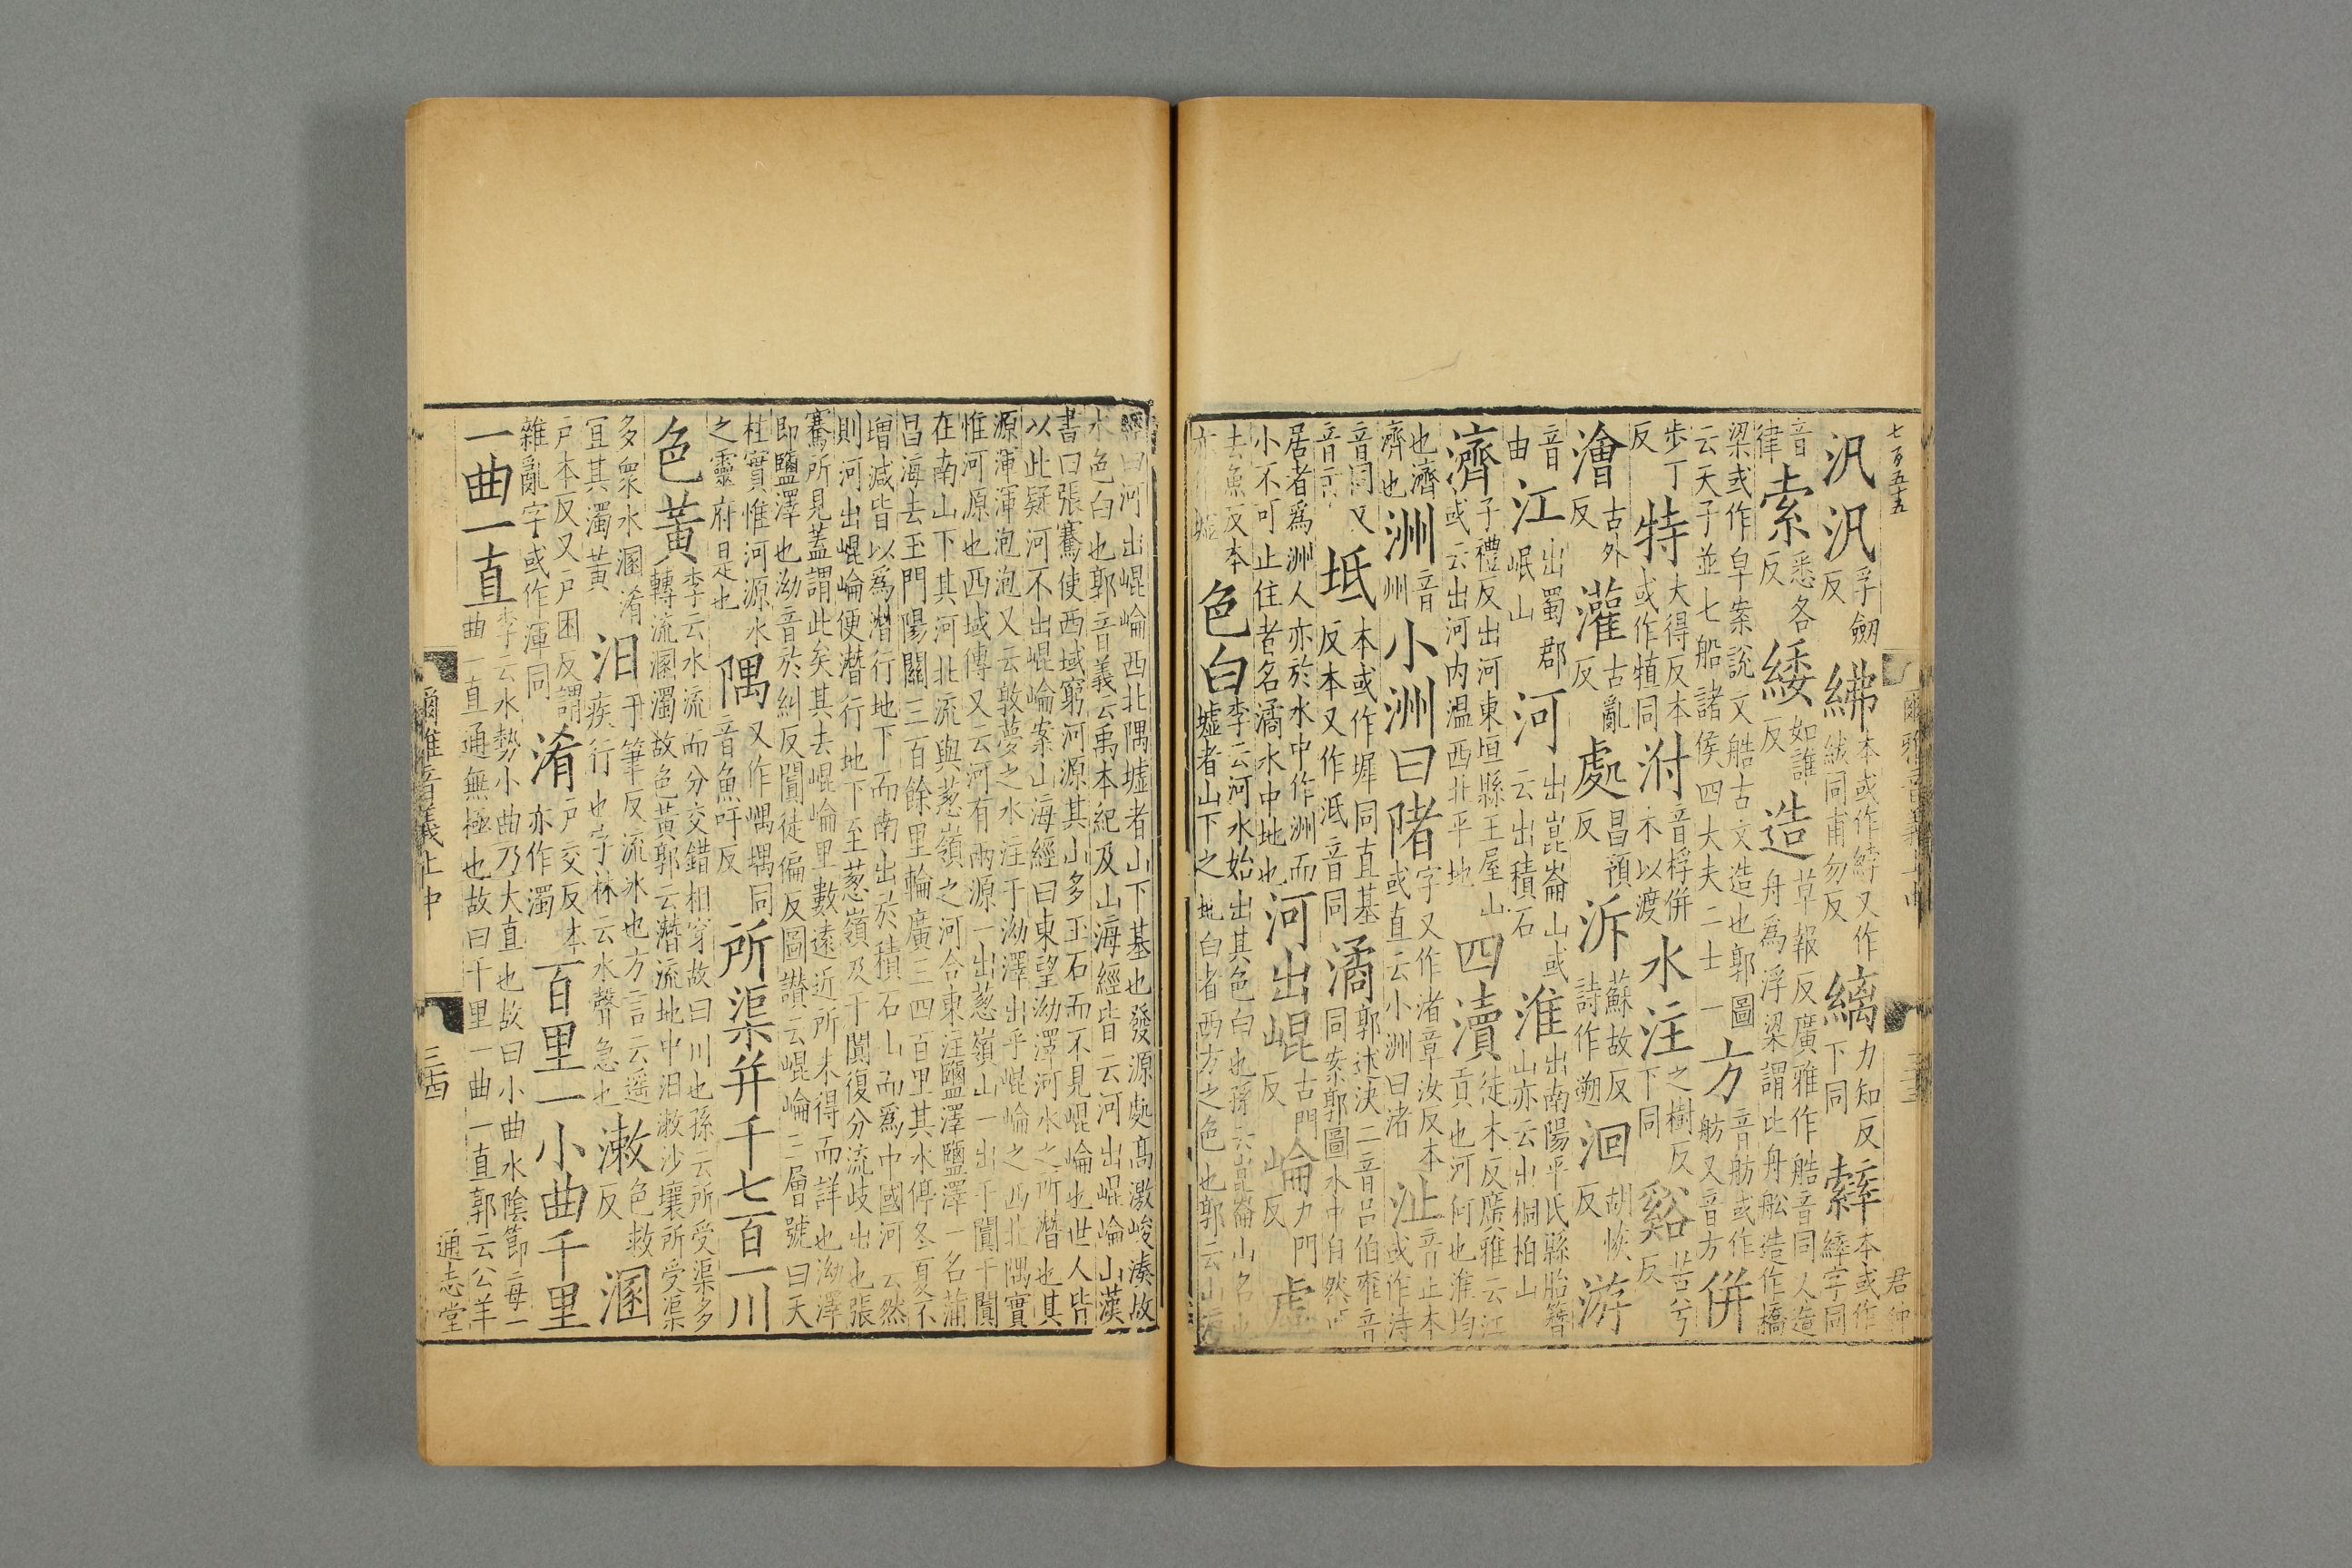 七百五十五
爾雅音義上中
君仲
汎汎孚劒反紼本或作綍又作紱同甫勿反縭力知反下同繂本或作綷字同
音律索悉各反緌如誰反造草報反廣雅作艁音同人造舟爲浮梁謂比舟舩造作橋
梁或作皁案說文艁古文造也郭圖云天子並七船諸侯四大夫二士一方音舫或作舫又音方併
步丁反特大得反本或作犆同泭音桴併木以渡水注之樹反下同谿苦兮反
澮古外反灌古亂反處昌預反泝蘇故反詩作遡洄胡恢反游
音由江出蜀郡岷山河出崑崙山或云出積石淮出南陽平氏縣胎簪山亦云出桐柏山
濟子禮反出河東垣縣王屋山或云出河内温西北平地四瀆徒木反廣雅云江貢也河何也淮均
也濟濟也洲音州小洲曰陼字又作渚章汝反本或直云小洲曰渚沚音止本或作洔
音同又音市坻本或作墀同直基反本又作泜音同潏郭述決二音呂伯雍音同案郭圖水中自然可
居者爲洲人亦於水中作洲而小不可止住者名潏水中地也河出崐古門反崘力門反虛
去魚反本亦作墟色白李云河水始出其色白也孫云崑崙山名山墟者山下之地白者西方之色也郭云山海
經曰河出崐崘西北隅墟者山下基也發源處高激峻湊故水色白也郭音義云禹本紀及山海經皆云河出崐崘山漢
書曰張騫使西域窮河源其山多玉石而不見崐崘也世人皆以此疑河不出崐崘案山海經曰東望泑澤河水之所潛也其
源渾渾泡泡又云敦薨之水注于泑澤出乎崐崘之西北隅實惟河原也西域傳又云河有兩源一出葱嶺山一出于闐于闐
在南山下其河北流與葱嶺之河合東注鹽澤鹽澤一名蒲昌海去玉門陽關三百餘里輪廣三四百里其水停冬夏不
增減皆以爲潛行地下而南出於積石山而爲中國河云然則河出崐崘便潛行地下至葱嶺及于闐復分流歧出也張
騫所見蓋謂此矣其去崐崘里數遠近所未得而詳也泑澤即鹽澤也泑音於糾反闐徒偏反圖讚云崐崘三層號曰天
柱實惟河源水之靈府是也隅又作嵎堣同音魚吁反所渠并千七百一川
色黃李云水流而分交錯相穿故曰川也孫云所受渠多轉流溷濁故色黃郭云潛流地中汩漱沙壤所受渠
多衆水溷淆宜其濁黃汩于筆反流水也方言云遥疾行也字林云水聲急也漱色救反溷
戶本反又戶困反謂雜亂字或作渾同淆戶交反本亦作濁百里一小曲千里
一曲一直李云水勢小曲乃大直也故曰小曲水陰節每一曲一直通無極也故曰千里一曲一直郭云公羊
爾雅音義上中
三四
通志堂